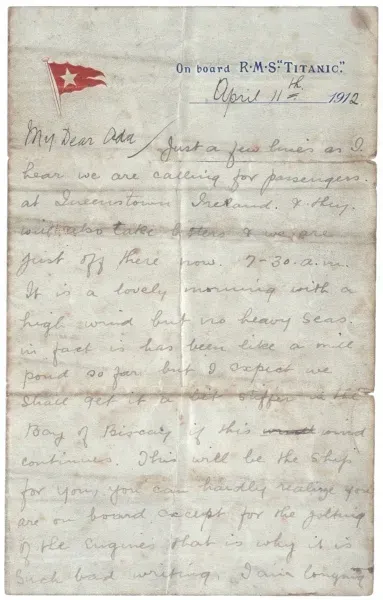 On board R·M·S "TITANIC".
April 11th 1912
My Dear Ada Just a few lines as I
hear we are calling for passengers
at Queenstown Ireland. & they
will also take letters & we are
just off there now. 7-30. a.m.
It is a lovely morning with a
high wind but no heavy seas.
in fact is has been like a mill
pond so far but I expect we
shall get it a bit stiffer in the
Bay of Biscay if this wind
continues. This will be the ship
for you, you can hardly realize you
are on board except for the jolting
of the engines that is why it is
such bad writing. I am longing